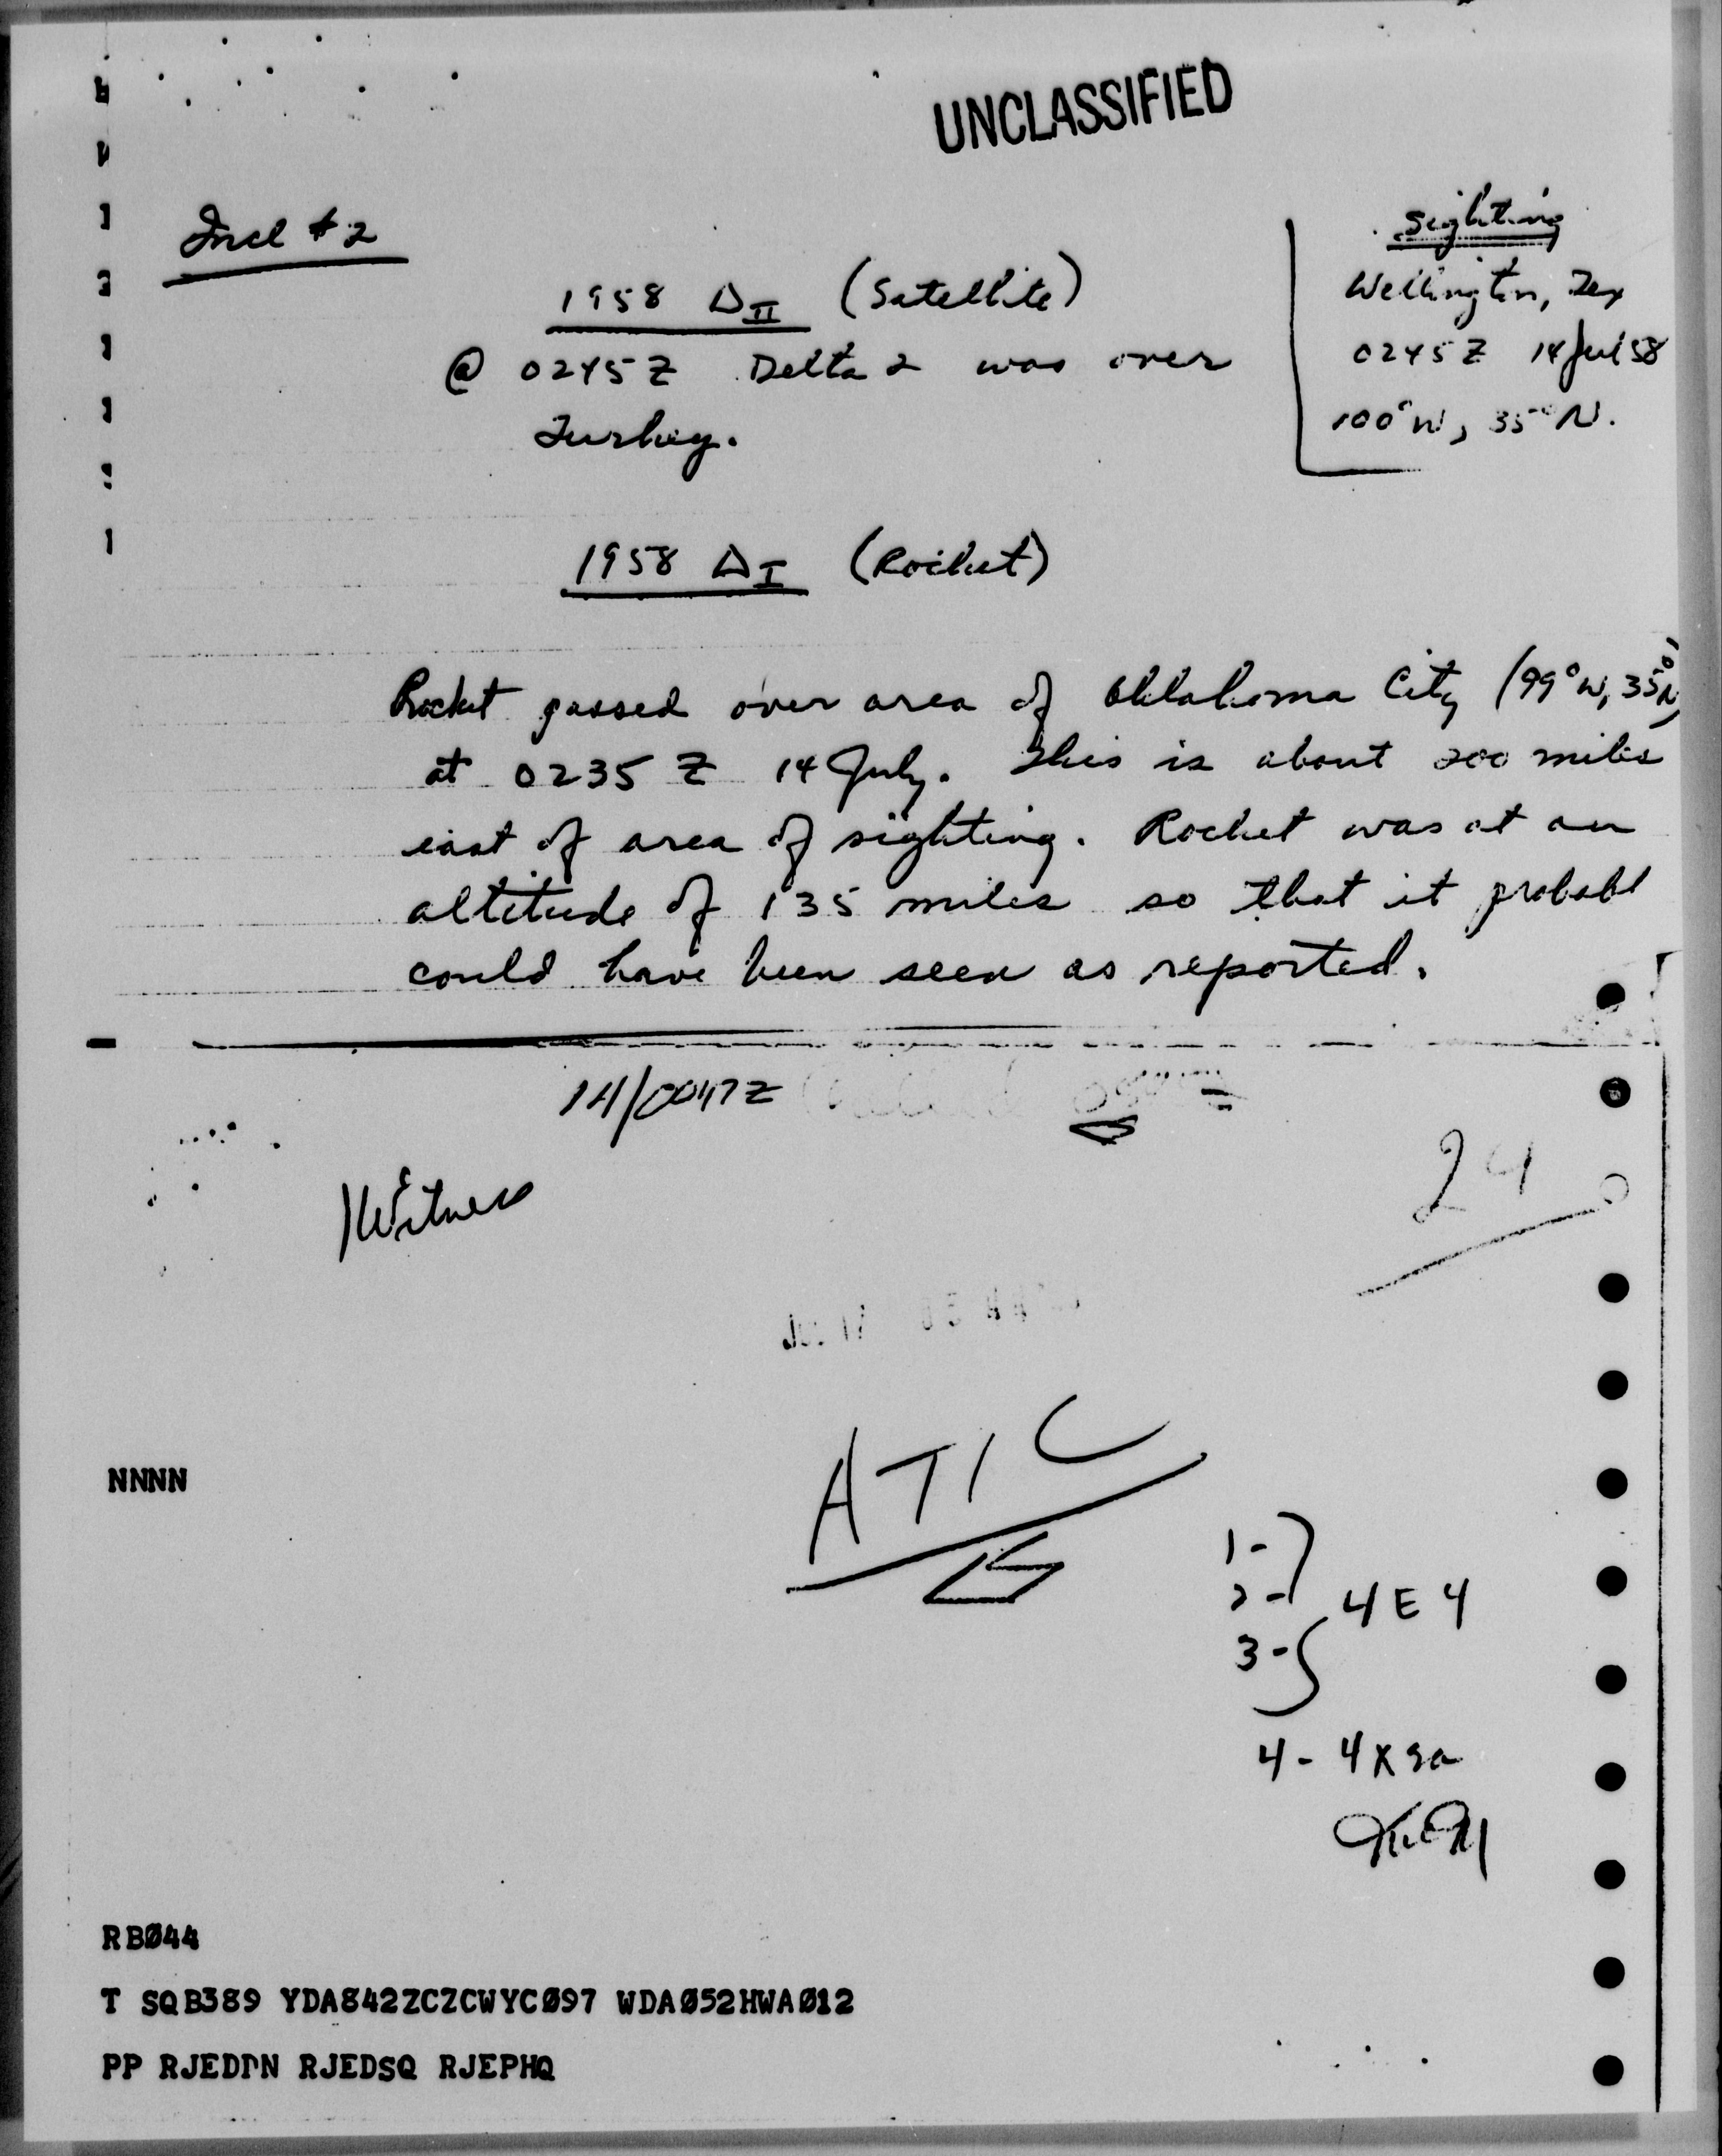 UNCLASSIFIED
Incl # 2
Sighting
Wellington, Tex
0245 Z 14 Jul 58
100° W, 35° N.
1958 Δ II (Satellite)
@ 0245 Z Delta 2 was over
Turkey.
1958 Δ I (Rocket)
Rocket passed over area of Oklahoma City (99° W, 35° N)
at 0235 Z 14 July. This is about 200 miles
east of area of sighting. Rocket was at an
altitude of 135 miles so that it probabl
could have been seen as reported.
14/0047Z
Witness
24
NNNN
ATIC
1-
2-
3-
4E4
4-
RBØ44
T SQB389 YDA842ZCZCWYCØ97 WDAØ52HWAØ12
PP RJEDDN RJEDSQ RJEPHQ